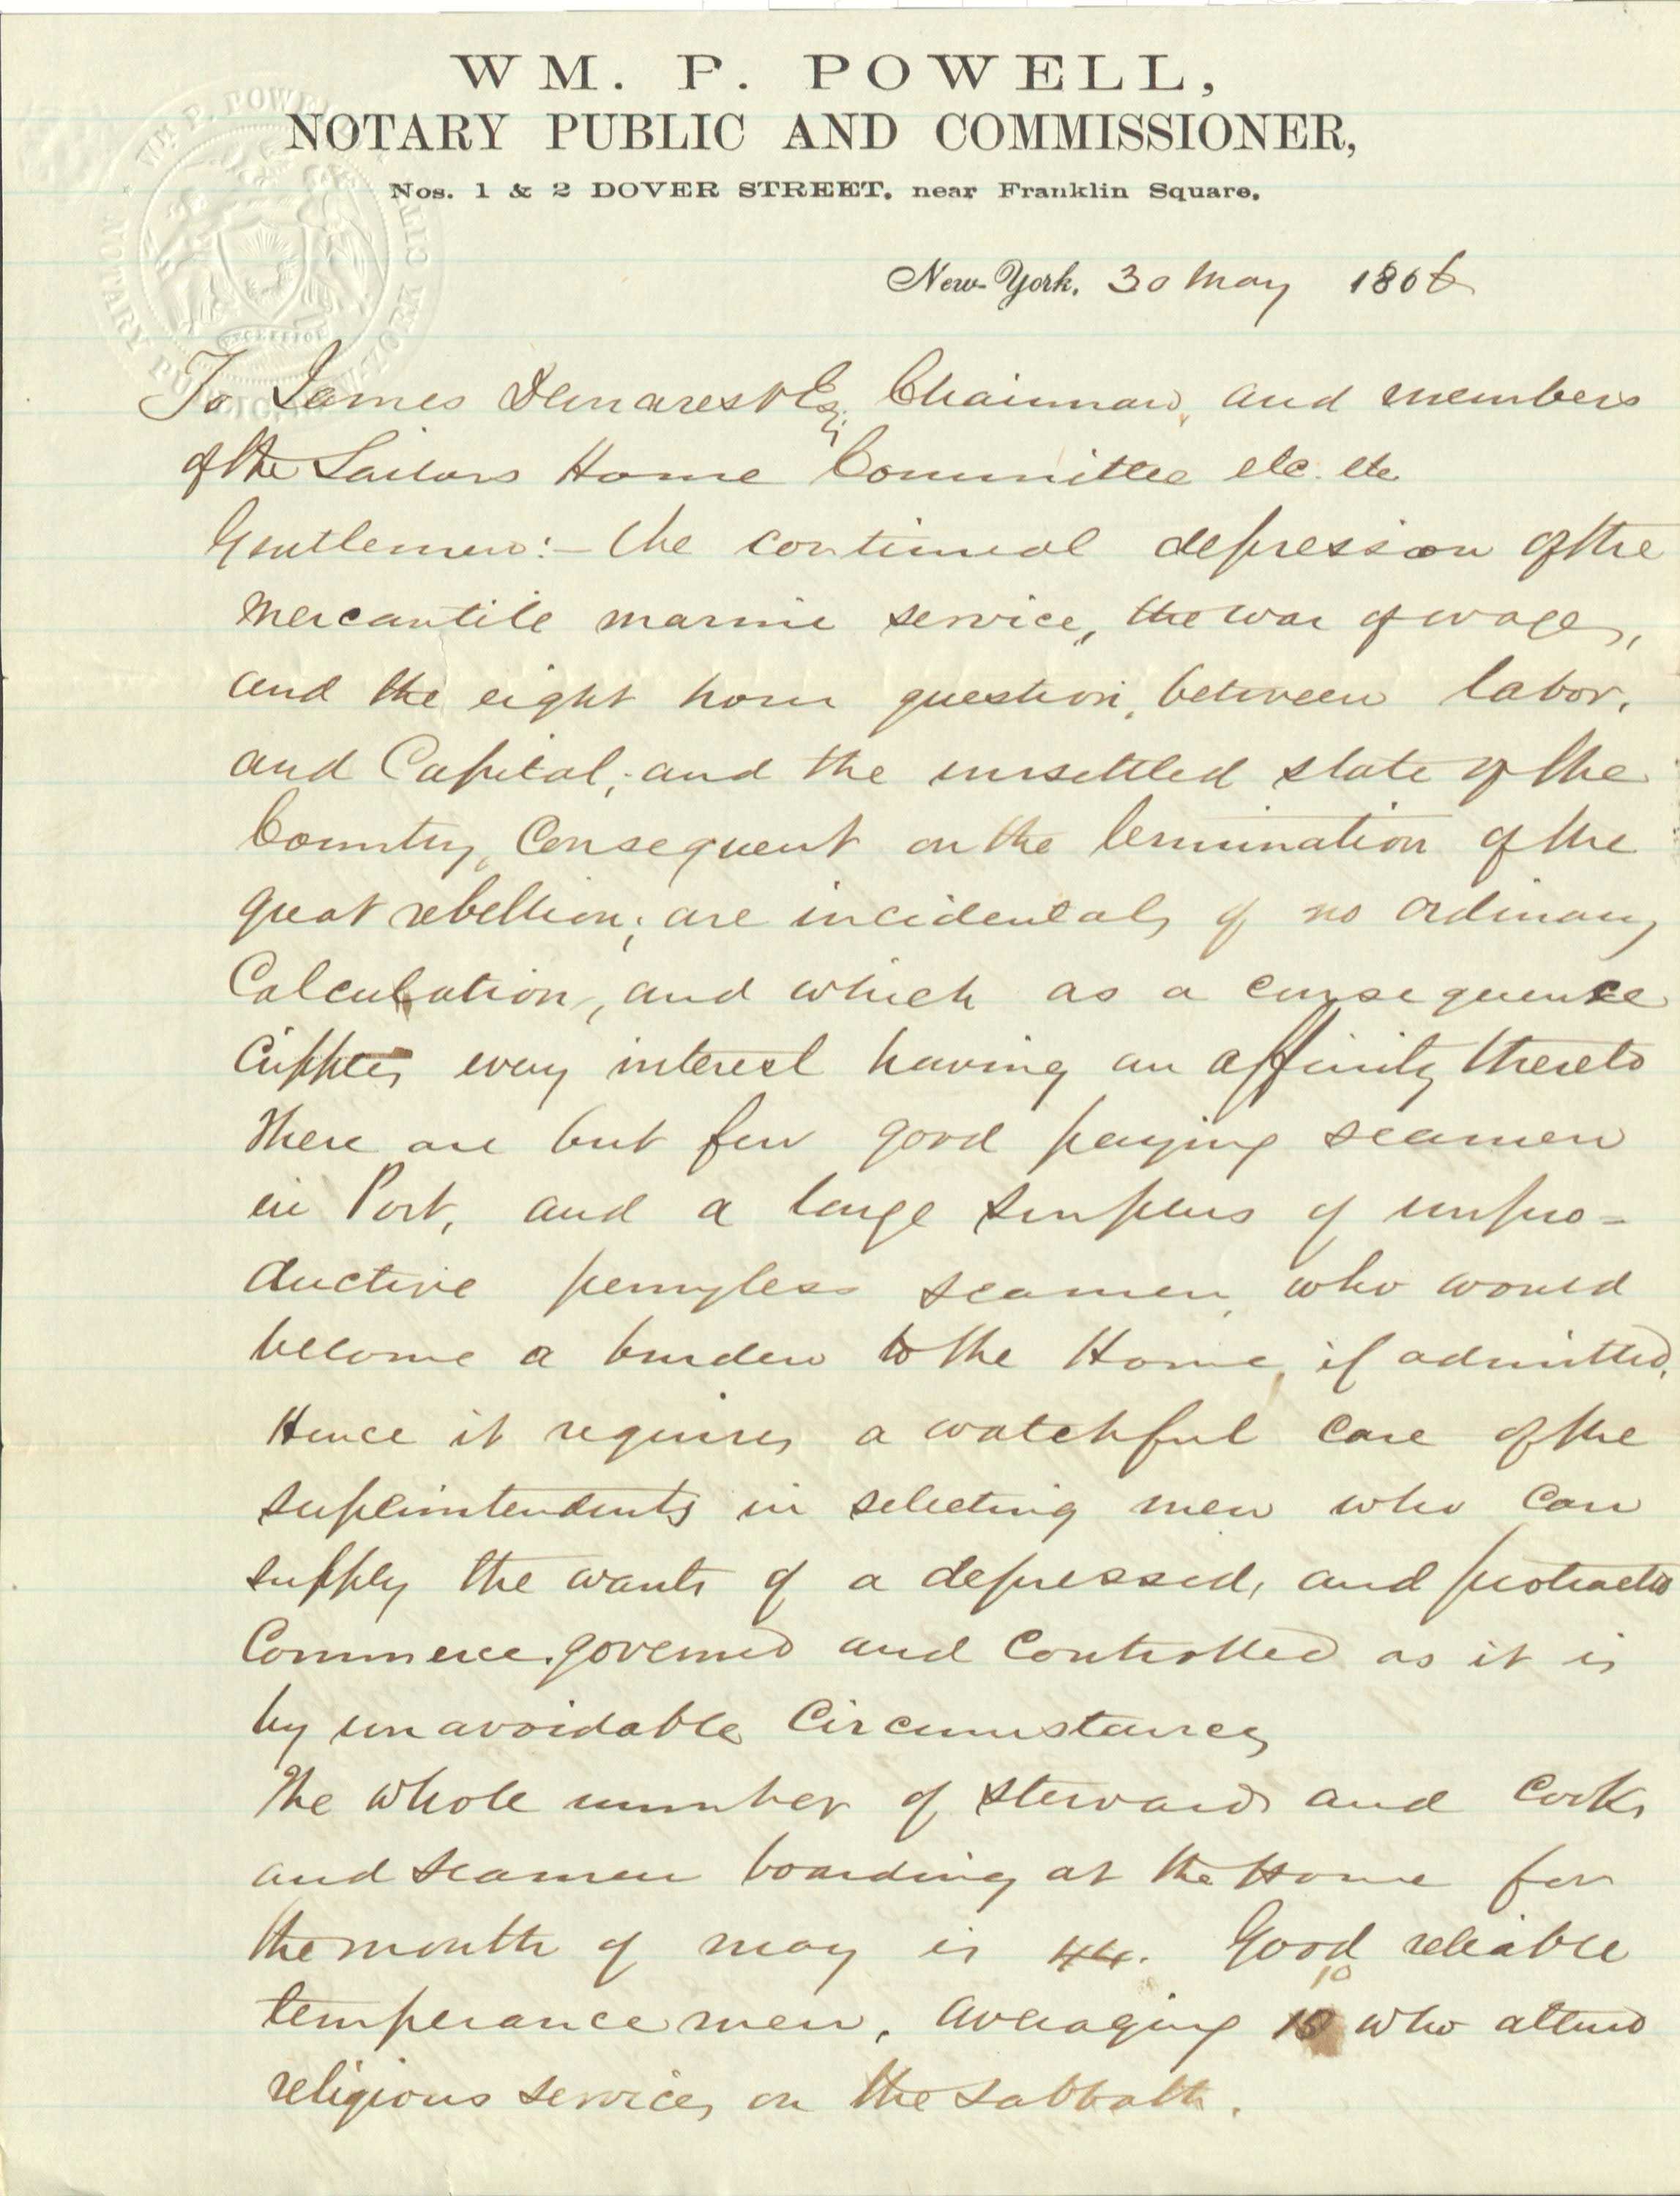 WM. P. POWELL,
NOTARY PUBLIC AND COMMISSIONER,
Nos. 1 & 2 DOVER STREET, near Franklin Square.
WM P. POWELL NOTARY PUBLIC CITY NEW-YORK
EXCELSIOR
New-York, 30 May 1866
To James Demarest Esq. Chairman, and members
of the Sailors Home Committee etc. etc
Gentlemen:- The continual depression of the
mercantile marine service, the war of wages,
and the eight hour question, between labor,
and Capital; and the unsettled state of the
Country, Consequent on the termination of the
great rebellion; are incidentals of no ordinary
Calculation, and which as a consequence
Cripples every interest having an affinity thereto
There are but few good paying seamen
in Port, and a large surplus of unpro=
ductive pennyless seamen, who would
become a burden to the Home, if admitted.
Hence it requires a watchful care of the
superintendents in selecting men who can
supply the wants of a depressed, and protracted
Commerce, governed and Controlled as it is
by unavoidable Circumstances
The whole number of stewards and Cooks
and seamen boarding at the Home for
the month of may is 44. Good reliable
temperance men, averaging 10 10 who attend
religious services on the Sabbath.